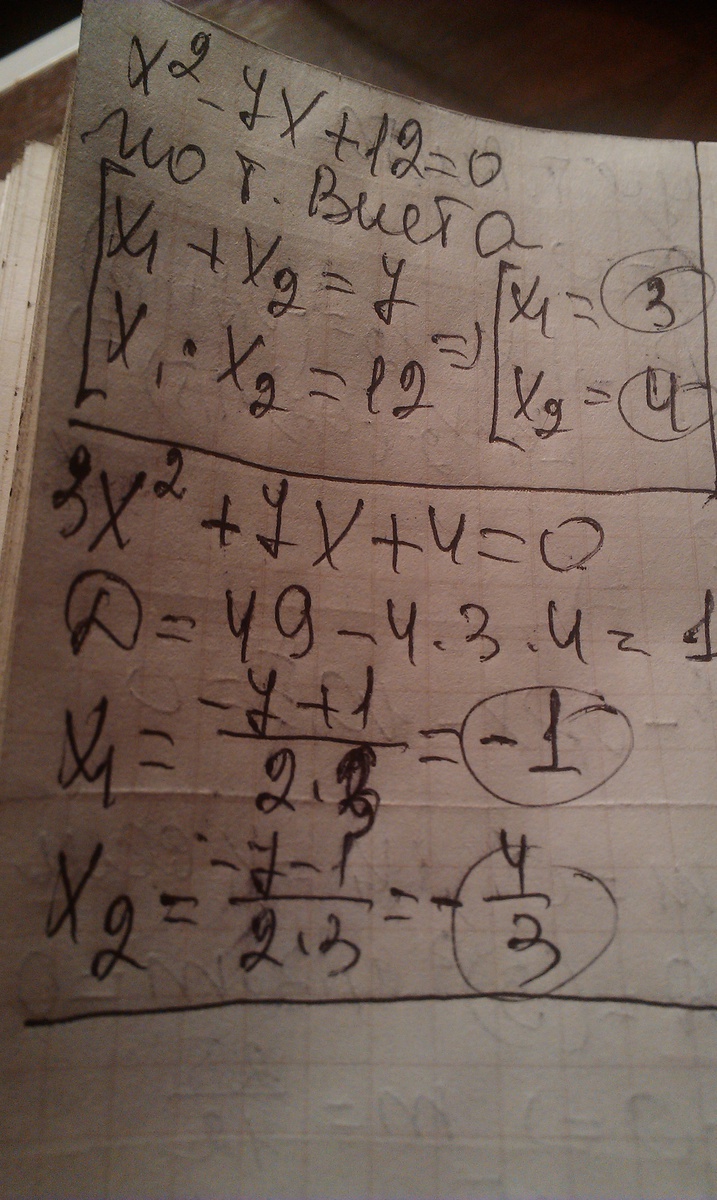 x² - 7x + 12 = 0
по т. Виета
[x₁ + x₂ = 7
x₁ · x₂ = 12 => [x₁ = 3
x₂ = 4
3x² + 7x + 4 = 0
D = 49 - 4 · 3 · 4 = 1
x₁ = (-7 + 1)/(2 · 3) = -1
x₂ = (-7 - 1)/(2 · 3) = -4/3